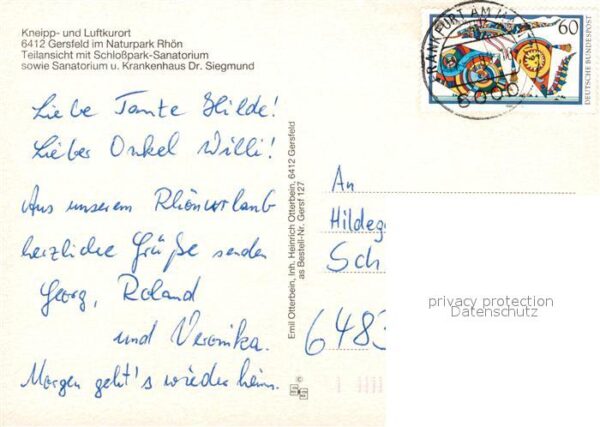 Kneipp- und Luftkurort
6412 Gersfeld im Naturpark Rhön
Teilansicht mit Schloßpark-Sanatorium
sowie Sanatorium u. Krankenhaus Dr. Siegmund
Liebe Tante Hilde!
Lieber Onkel Willi!
Aus unserem Rhönurlaub
herzliche Grüße senden
Georg, Roland
und Veronika.
Morgen geht's wieder heim.
Emil Otterbein, Inh. Heinrich Otterbein, 6412 Gersfeld
as Bestell-Nr. Gersf 127
FRANKFURT AM
6000
60
DEUTSCHE BUNDESPOST
An
Hildeg
Sch
6483
privacy protection
Datenschutz